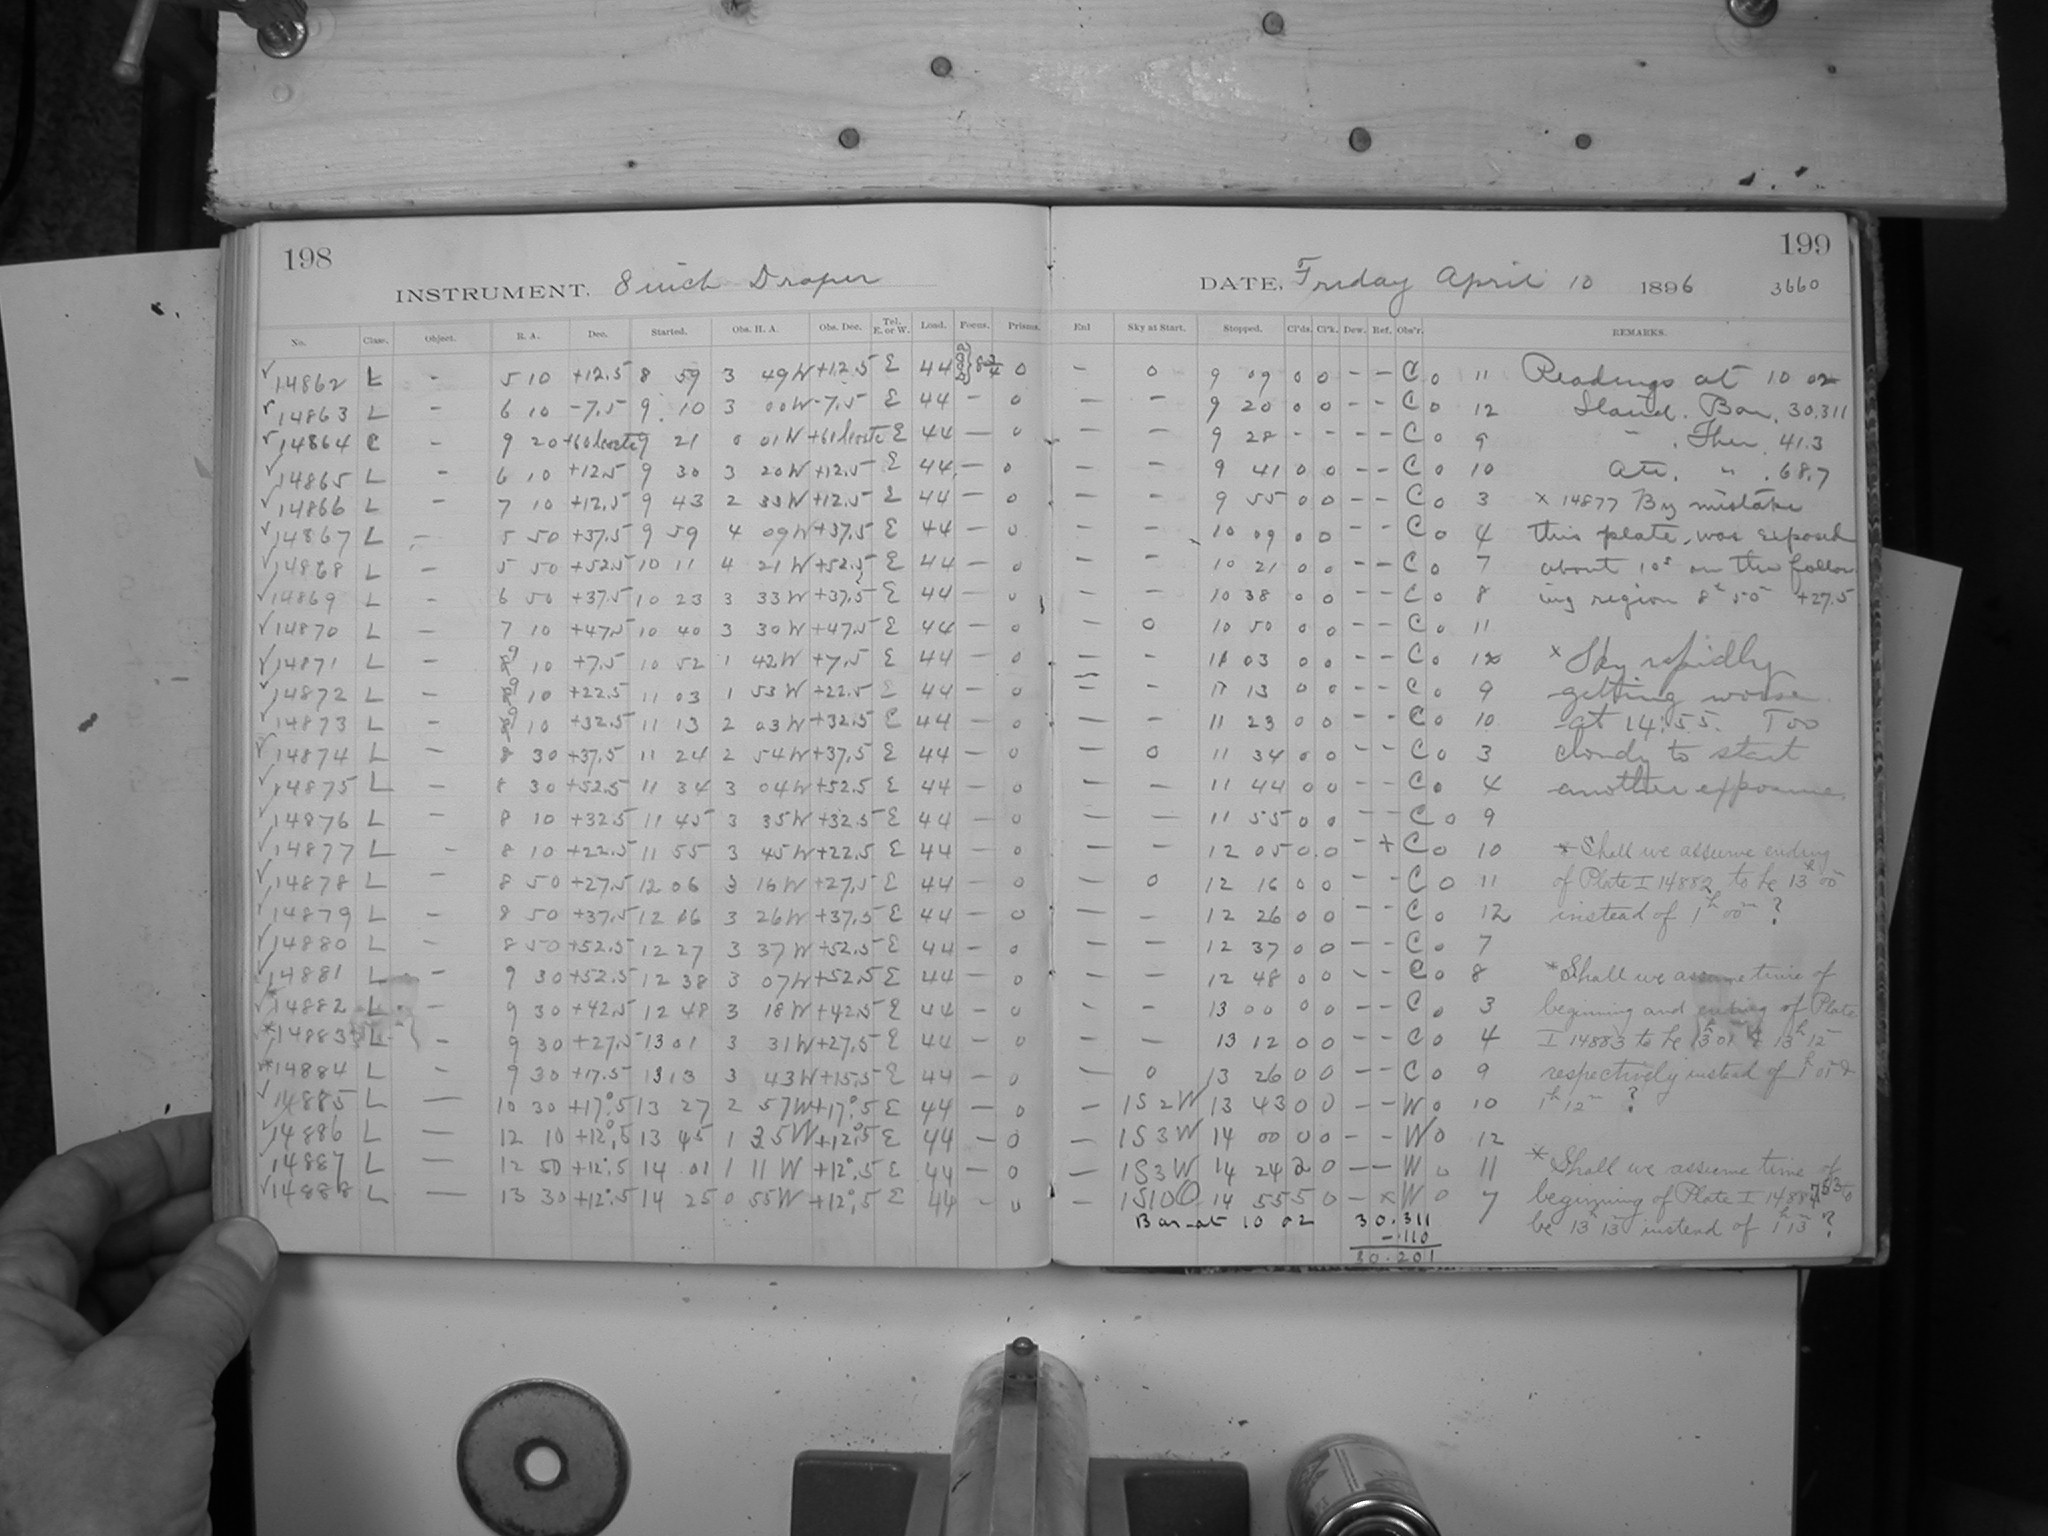 198
199
INSTRUMENT. 8 inch Draper
DATE, Friday April 10 1896 3660
No. Class. Object. R. A. Dec. Started. Obs. H. A. Obs. Dec. Tel. E. or W. Load. Focus. Prisms. Enl Sky at Start. Stopped. Cl'ds. Cl'k. Dew. Ref. Obs'r. REMARKS.
√ 14862 L - 5 10 +12.5 8 59 3 49W +12.5 E 44 0 - 0 9 09 0 0 - - C 0 11 Readings at 10 02
√ 14863 L - 6 10 -7.5 9 10 3 00W -7.5 E 44 - 0 - - 9 20 0 0 - - C 0 12 Stand. Bar. 30.311
√ 14864 C - 9 20 9 21 0 01W E 44 - 0 - - 9 28 - - - - C 0 9 " . Ther. 41.3
√ 14865 L - 6 10 +12.5 9 30 3 20W +12.5 E 44 - 0 - - 9 41 0 0 - - C 0 10 Att. " .68.7
√ 14866 L - 7 10 +12.5 9 43 2 33W +12.5 E 44 - 0 - - 9 55 0 0 - - C 0 3 x 14877 By mistake
√ 14867 L - 5 50 +37.5 9 59 4 09W +37.5 E 44 - 0 - - 10 09 0 0 - - C 0 4 this plate was exposed
√ 14868 L - 5 50 +52.5 10 11 4 21W +52.5 E 44 - 0 - - 10 21 0 0 - - C 0 7 about 10s on the follow
√ 14869 L - 6 50 +37.5 10 23 3 33W +37.5 E 44 - 0 - - 10 38 0 0 - - C 0 8 ing region 8h 50 +27.5
√ 14870 L - 7 10 +47.5 10 40 3 30W +47.5 E 44 - 0 - 0 10 50 0 0 - - C 0 11
√ 14871 L - 9 10 +7.5 10 52 1 42W +7.5 E 44 - 0 - - 11 03 0 0 - - C 0 12 x Sky rapidly
√ 14872 L - 9 10 +22.5 11 03 1 53W +22.5 E 44 - 0 - - 11 13 0 0 - - C 0 9 getting worse
√ 14873 L - 9 10 +32.5 11 13 2 03W +32.5 E 44 - 0 - - 11 23 0 0 - - C 0 10 at 14:55. Too
√ 14874 L - 8 30 +37.5 11 24 2 54W +37.5 E 44 - 0 - 0 11 34 0 0 - - C 0 3 cloudy to start
√ 14875 L - 8 30 +52.5 11 34 3 04W +52.5 E 44 - 0 - - 11 44 0 0 - - C 0 4 another exposure.
√ 14876 L - 8 10 +32.5 11 45 3 35W +32.5 E 44 - 0 - - 11 55 0 0 - - C 0 9
√ 14877 L - 8 10 +22.5 11 55 3 45W +22.5 E 44 - 0 - - 12 05 0 0 - + C 0 10 * Shall we assume ending
√ 14878 L - 8 50 +27.5 12 06 3 16W +27.5 E 44 - 0 - 0 12 16 0 0 - - C 0 11 of Plate I 14882 to be 13h 00
√ 14879 L - 8 50 +37.5 12 06 3 26W +37.5 E 44 - 0 - - 12 26 0 0 - - C 0 12 instead of 1h 00m ?
√ 14880 L - 8 50 +52.5 12 27 3 37W +52.5 E 44 - 0 - - 12 37 0 0 - - C 0 7
√ 14881 L - 9 30 +52.5 12 38 3 07W +52.5 E 44 - 0 - - 12 48 0 0 - - C 0 8 * Shall we assume time of
√ 14882 L - 9 30 +42.5 12 48 3 18W +42.5 E 44 - 0 - - 13 00 0 0 - - C 0 3 beginning and ending of Plate
* 14883 L - 9 30 +27.5 13 01 3 31W +27.5 E 44 - 0 - - 13 12 0 0 - - C 0 4 I 14883 to be 13h 01 & 13h 12
* 14884 L - 9 30 +17.5 13 13 3 43W +15.5 E 44 - 0 - 0 13 26 0 0 - - C 0 9 respectively instead of 1h 01m &
√ 14885 L - 10 30 +17°.5 13 27 2 57W +17°.5 E 44 - 0 - 1S2W 13 43 0 0 - - W 0 10 1h 12m ?
√ 14886 L - 12 10 +12°.5 13 45 1 35W +12°.5 E 44 - 0 - 1S3W 14 00 0 0 - - W 0 12
√ 14887 L - 12 50 +12°.5 14 01 1 11W +12°.5 E 44 - 0 - 1S3W 14 24 2 0 - - W 0 11 * Shall we assume time of
√ 14888 L - 13 30 +12°.5 14 25 0 55W +12°.5 E 44 - 0 - 1S10O 14 55 5 0 - x W 0 7 beginning of Plate I 14884 to
Bar at 10 02 30.311 be 13h 13m instead of 1h 13m ?
-.110
30.201